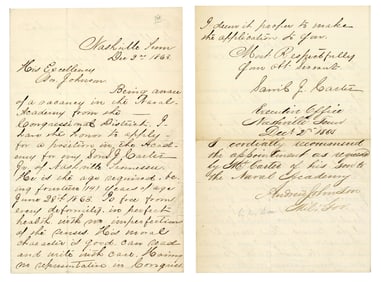 Nashville Tenn
Dec 2nd 1863
His Excellency
Johnson
Being aware
of a vacancy in the Naval
Academy from the
Congressional District. I
have the honor to apply
for a position in the Acad-
emy for my Son J Carter
Jr of Nashville Tennessee.
He is the age required: be-
ing fourteen (14) years of age
June 28th 1863. Is free from
every deformity, in perfect
health with no imperfections
of the senses. His moral
character is good can read
and write with care. Having
no representative in Congress
I deem it proper to make
the application to You.
Most Respectfully
Your Obt. Servant
Danl J. Carter
Executive Office
Nashville Tenn
Dect 2d 1863
I cordially recommend
the appointment as
by Mr Carter of his Son to
the Naval Academy
Andrew Johnson
Mil. Gov.